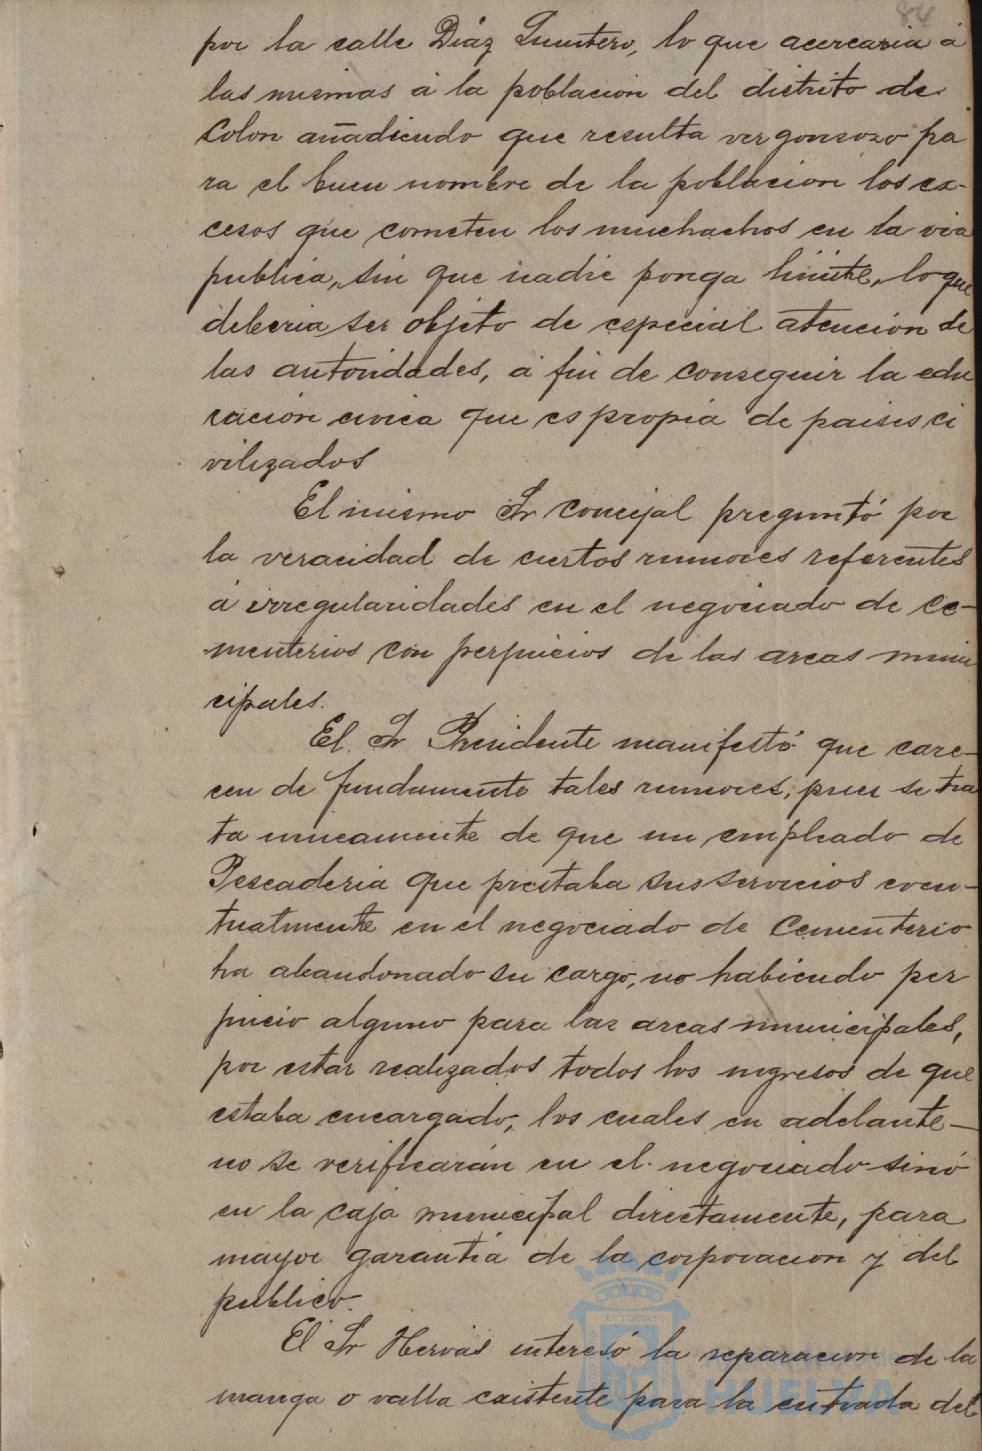 84
por la calle Diáz Quintero, lo que acercaria á
las mismas á la poblacion del distrito de
Colon añadiendo que resulta vergonzozo pa
ra el buen nombre de la poblacion los ex-
cesos que cometen los muchachos en la via
publica, sin que nadie ponga limite, lo que
deberia ser objeto de especial atencion de
las autoridades, á fin de conseguir la edu
cación civica que es propia de paises ci
vilizados
El mismo Sr Concejal preguntó por
la veracidad de ciertos rumores referentes
á irregularidades en el negociado de Ce-
menterios con perjuicios de las arcas muni
cipales.
El Sr Presidente manifestó que care-
cen de fundamento tales rumores, pues se tra
ta unicamente de que un empleado de
Pescaderia que prestaba sus servicios even-
tualmente en el negociado de Cementerio
ha abandonado su cargo, no habiendo per
juicio alguno para las arcas municipales,
por estar realizados todos los ingresos de que
estaba encargado, los cuales en adelante-
no se verificarán en el negociado sinó
en la caja municipal directamente, para
mayor garantia de la corporacion y del
publico.
El Sr Hervás interesó la reparacion de la
manga o valla existente para la entrada del
HUELVA